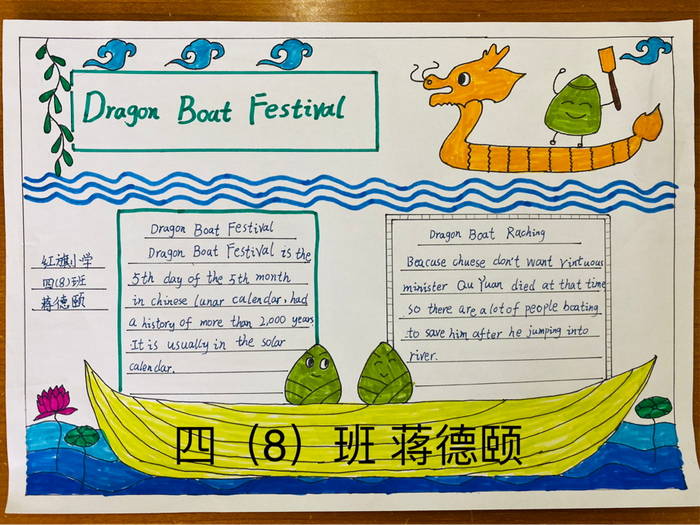 Dragon Boat Festival
红旗小学
四(8)班
蒋德颐
Dragon Boat Festival
Dragon Boat Festival is the
5th day of the 5th month
in chinese lunar calendar. had
a history of more than 2,000 years
It is usually in the solar
calendar.
Dragon Boat Raching
Beacuse chuese don't want virtuous
minister Qu Yuan died at that time
so there are a lot of people boating
to save him after he jumping into
river.
四（8）班 蒋德颐